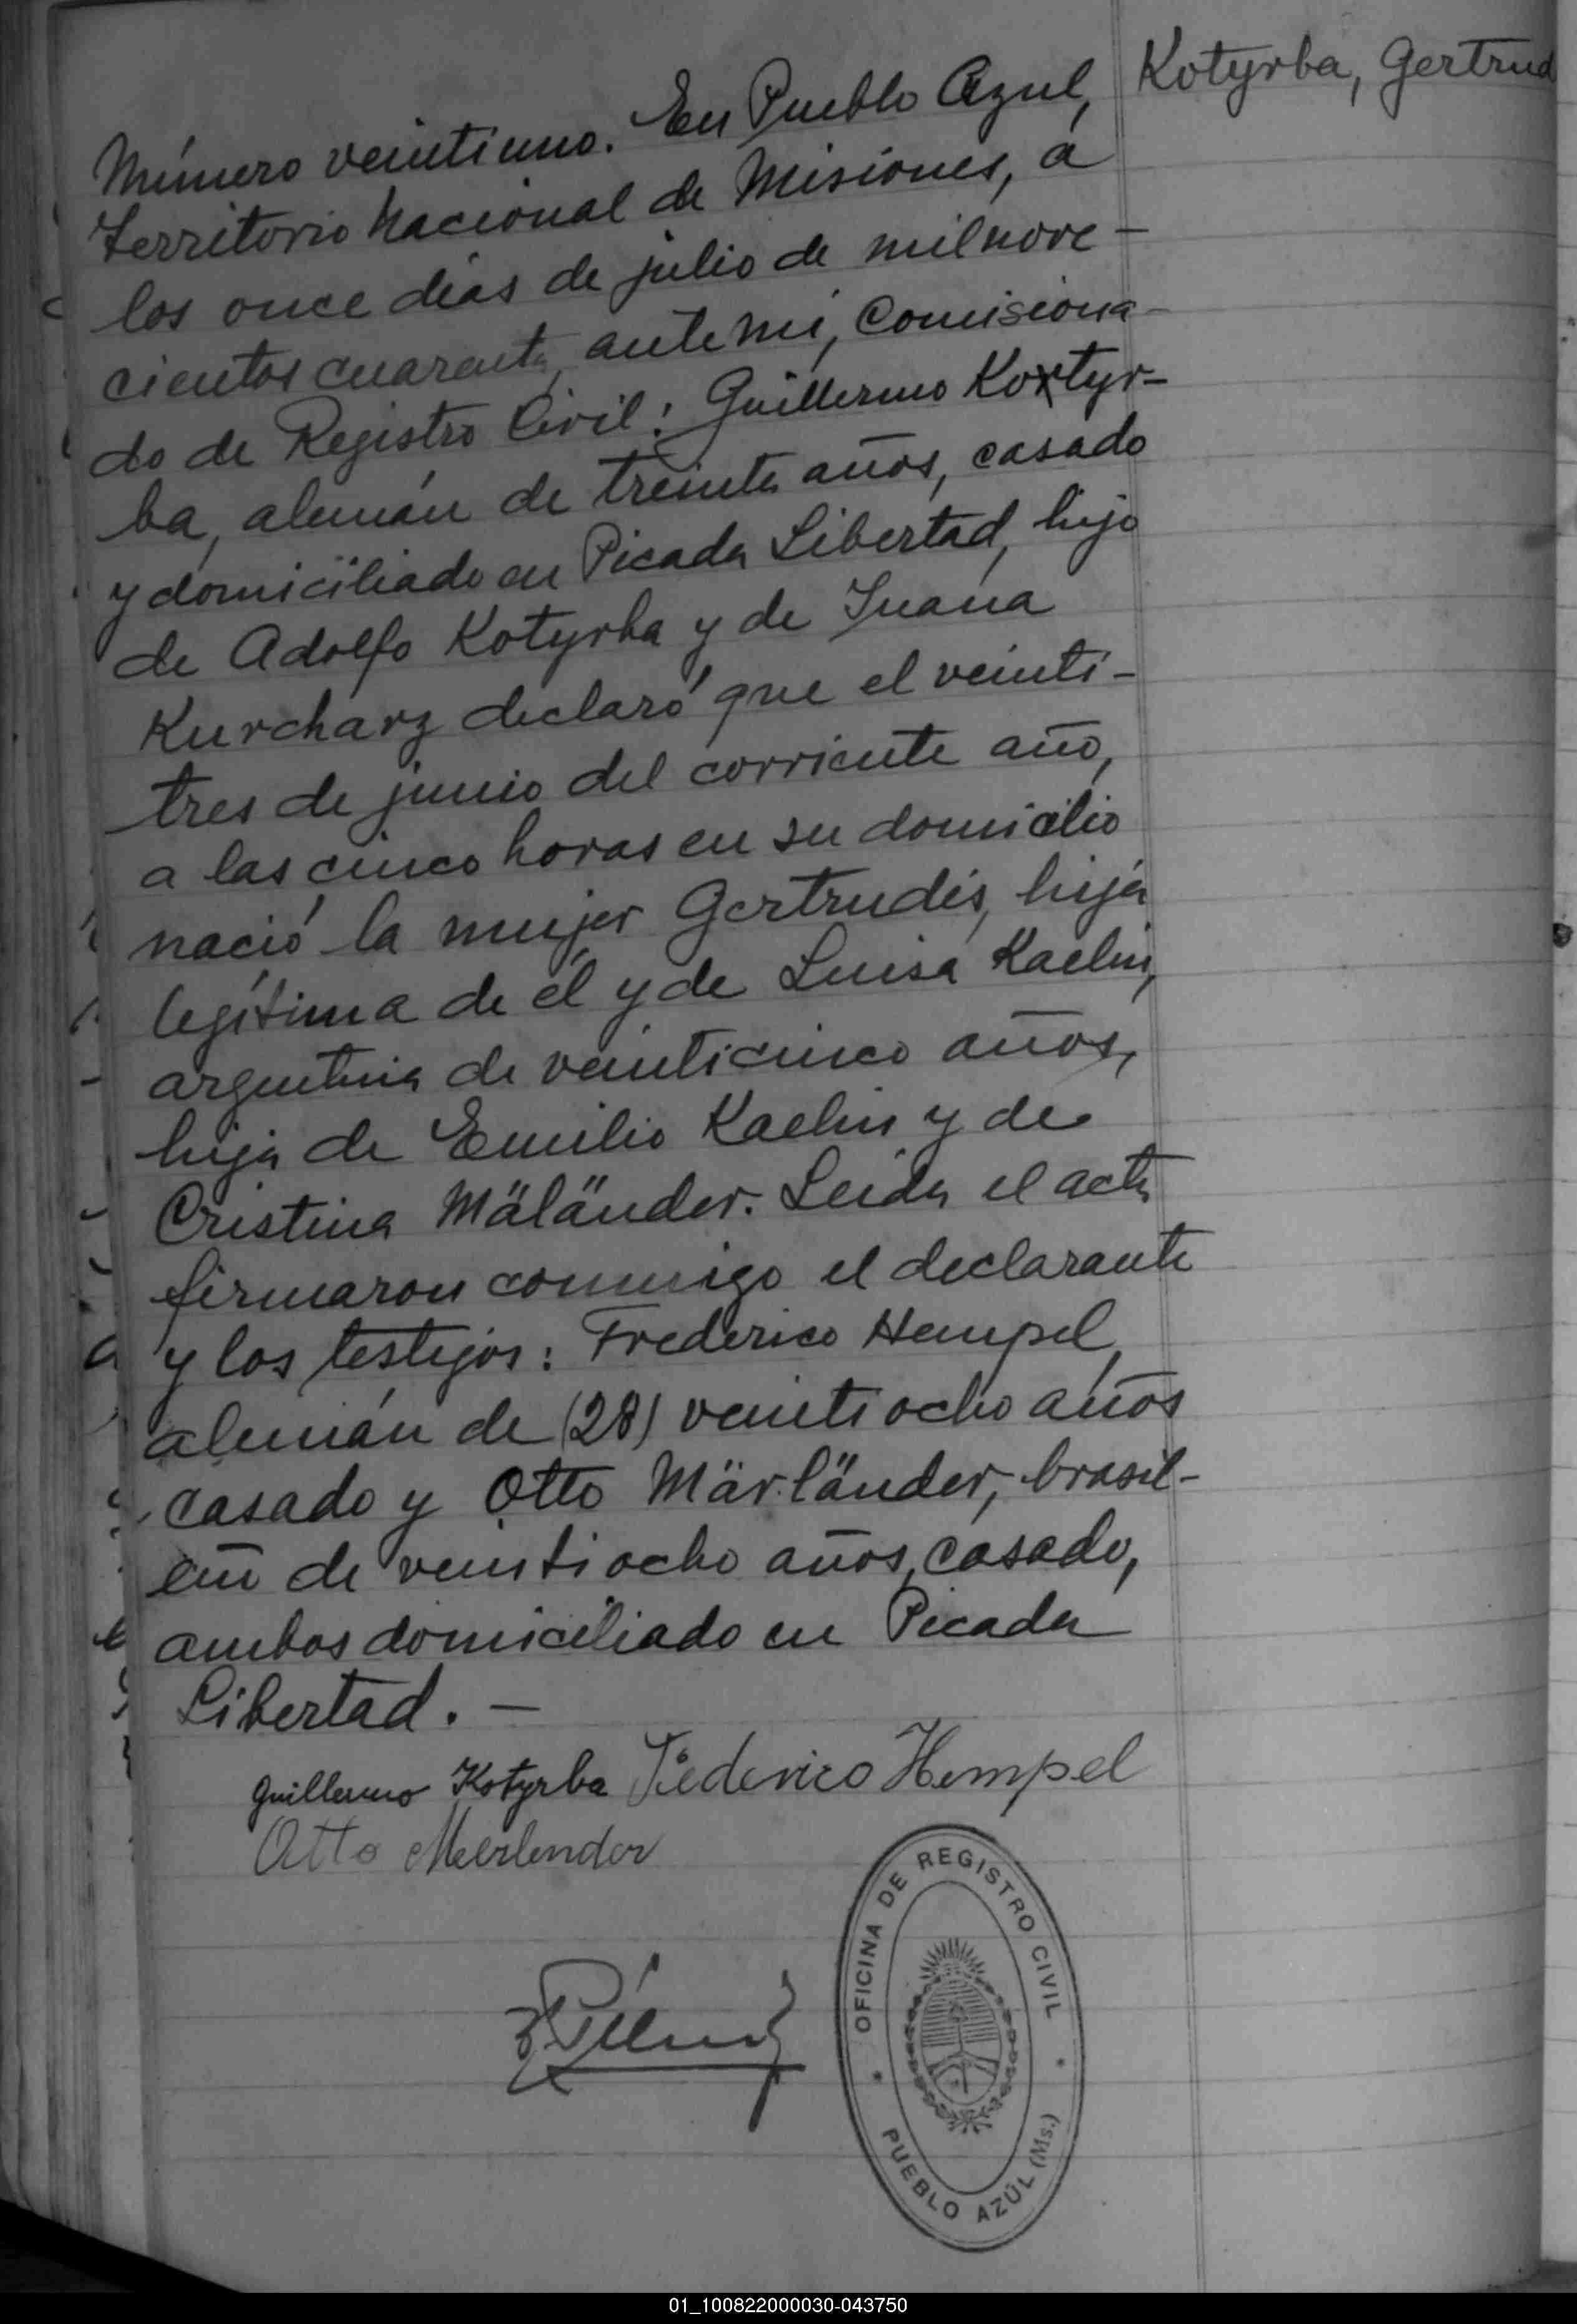 Kotyrba, Gertrud
Número veintiuno. En Pueblo Azul,
Territorio Nacional de Misiones, a
los once días de julio de mil nove-
cientos cuarenta, ante mi, Comisiona-
do de Registro Civil: Guillermo Koxtyr-
ba, alemán de treinta años, casado
y domiciliado en Picada Libertad, hijo
de Adolfo Kotyrba y de Juana
Kurcharz declaró que el veinti-
tres de junio del corriente año,
a las cinco horas en su domicilio
nació la mujer Gertrudis, hija
legítima de él y de Luisa Kaelin,
argentina de veinticinco años,
hija de Emilio Kaelin y de
Cristina Mäländer. Leida el acta
firmaron conmigo el declarante
y los testigos: Frederico Hempel,
alemán de (28) veintiocho años
casado y Otto Märländer, brasil-
eño de veintiocho años, casado,
ambos domiciliado en Picada
Libertad. —
Guillermo Kotyrba Federico Hempel
Otto Meerlender
OFICINA DE REGISTRO CIVIL
* PUEBLO AZÚL (Ms.) *
01_100822000030-043750